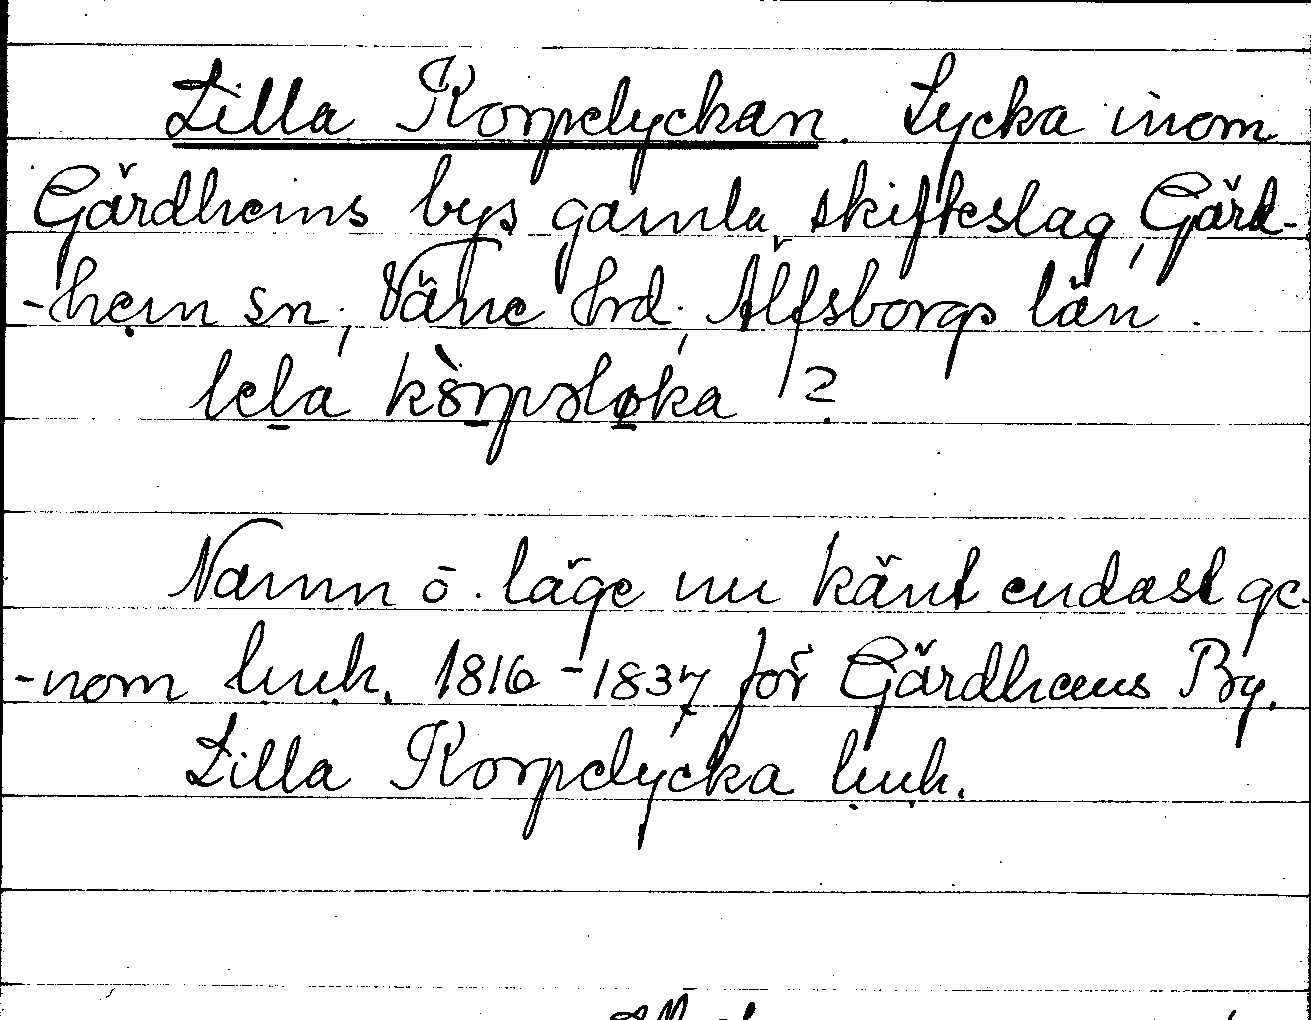 Lilla Korpelyckan. Lycka inom
Gärdhems bys gamla skifteslag, Gärd-
-hem sn, Väne hrd, Älfsborgs län.
lela kòrpəløka ?
Namn o. läge nu känt endast ge-
-nom lmh. 1816-1837 för Gärdhems By.
Lilla Korpelycka lmh.